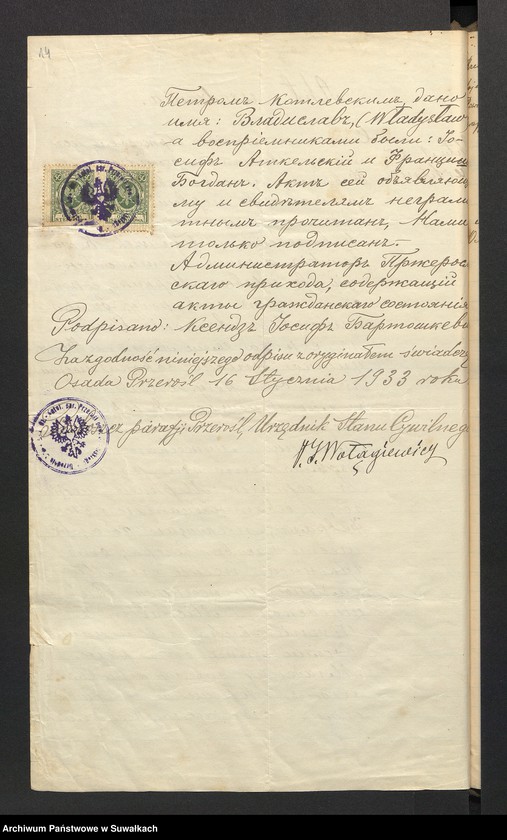 14
Петромъ Котлевскимъ, дано
имя: Владиславъ, (Władysław
а воспріемниками были: Іо-
сифъ Аткельскій и Францишк
Богданъ. Актъ сей объявляющ
му и свидѣтелямъ неграм
тнымъ прочитанъ, Нами
только подписанъ.
Администраторъ Пржерос
скаго прихода, содержащій
акты гражданскаго состоянія
Podpisano: Ксендзъ Іосифъ Бартошкеви
Za zgodność niniejszego odpisu z oryginałem świadczy
Osada Przerośl 16 Stycznia 1933 roku
parafji Przerośl, Urzędnik Stanu Cywilnego
Wołągiewicz
Archiwum Państwowe w Suwałkach